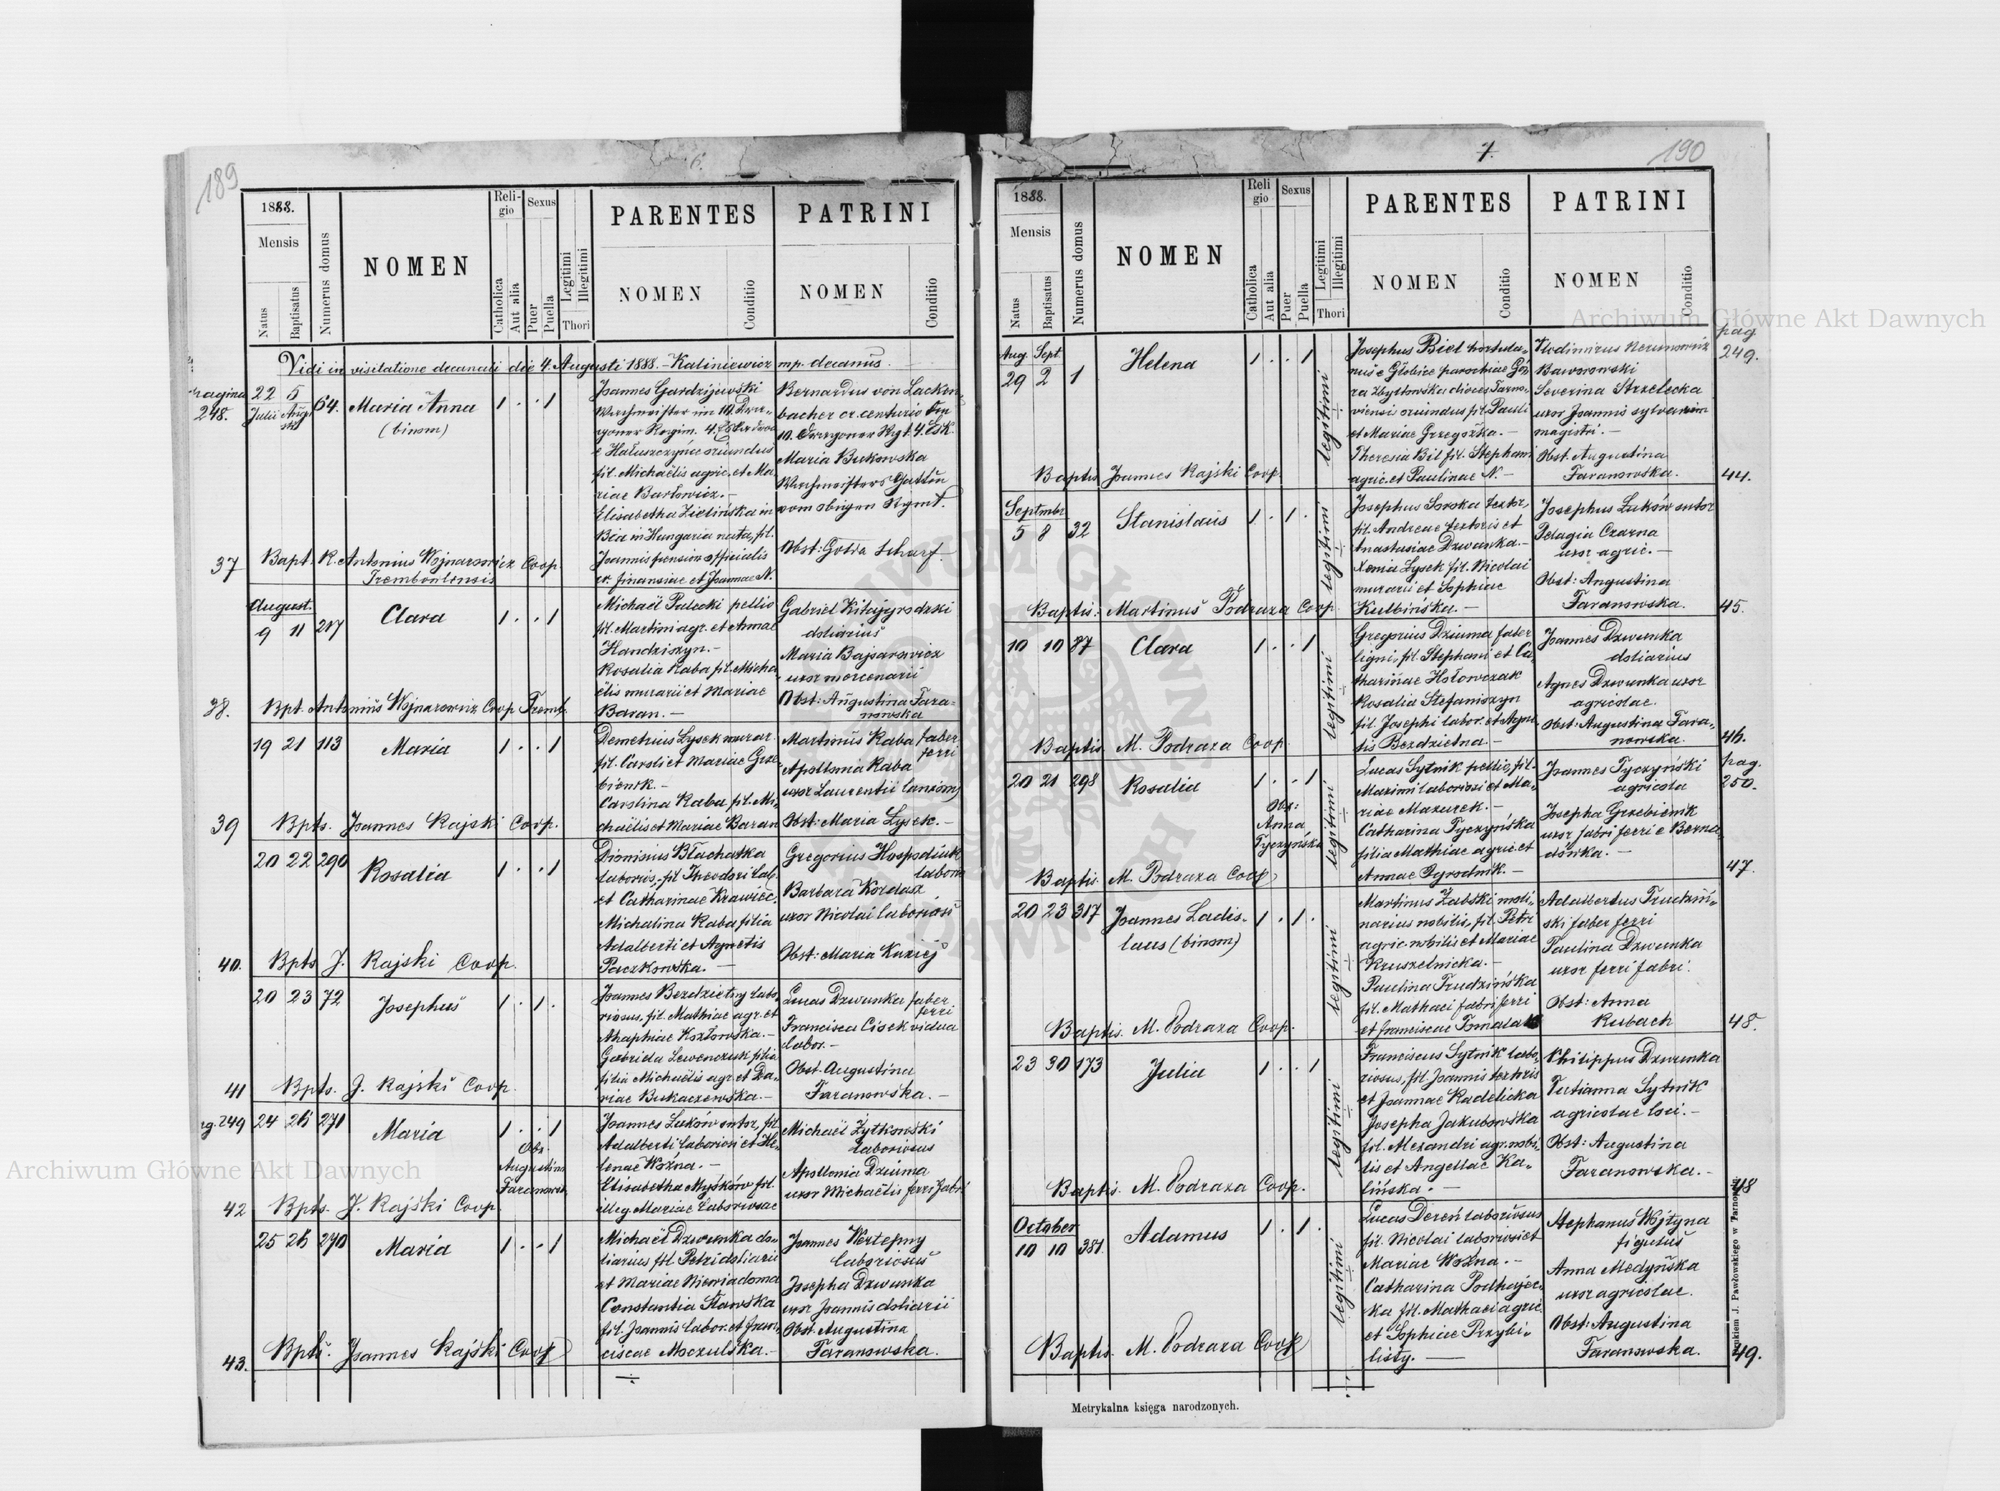 189
6.
1888.
Mensis
Natus
Baptisatus
Numerus domus
NOMEN
Religio
Catholica
Aut alia
Sexus
Puer
Puella
Legitimi
Illegitimi
Thori
PARENTES
NOMEN
Conditio
PATRINI
NOMEN
Conditio
Vidi in visitatione decanali die 4. Augusti 1888. – Kaliniewicz mp. decanus.
pagina
248.
22 5 64. Maria Anna 1 . . 1
Julii Augusti
(binom)
Joannes Gardzijewski
Wachmeister im 10. Dra-
goner Regim. 4. Eskadron
e Haluszczyńce oriundus
fil. Michaëlis agric. et Ma
riae Bartowicz. –
Elisabetha Zielińska in
Bëa in Hungaria nata, fil.
Joannis pension officialis
cr. finansiae et Joannae N.
Bernardus von Lacken-
bacher cr. centurio bey
10. Dragoner Rgt. 4. Esk.
Maria Bukowska
Wachmeisters Gattin
vom obigen Rgmt.
Obst: Golda Scharf
37 Bapt. R. Antonius Wojnarowicz Coop.
Trembowlensis
August.
9 11 217 Clara 1 . . 1
Michaël Palecki pellio
fil. Martini agr. et Annae
Handziszyn. –
Rosalia Kaba fil. Micha
ëlis murarii et Mariae
Baran. –
Gabriel Kitajgrodzki
doliarius
Maria Bajsarowicz
uxor mercenarii
Obst: Augustina Tara-
nowska
38. Bpt. Antonius Wojnarowicz Coop Tremb.
19 21 113 Maria 1 . . 1
Demetrius Lysek murar.
fil. Caroli et Mariae Grze
bieniik. –
Carolina Kaba fil. Mi,
chaëlis et Mariae Baran
Martinus Kaba faber
ferri
Apollonia Kaba
uxor Laurentii lanionis
Obst: Maria Lysek. –
39 Bpts. Joannes Rajski Coop.
20 22 290 Rosalia 1 . . 1
Dionisius Blachatka
laborios, fil. Theodori lab.
et Catharinae Krawiec,
Michalina Kaba filia
Adalberti et Agnetis
Paczkowska. –
Gregorius Hospodiuk
labor
Barbara Kordasz
uxor Nicolai laboriosi
Obst: Maria Kuziej
40. Bpts J. Rajski Coop.
20 23 72 Josephus 1 . 1 .
Joannes Bezdzietny labo,
riosus, fil. Mathiae agr. et
Ahaphiae Kozłowska. –
Gabriela Lewenczuk filia
filia Michaëlis agr. et Da-
riae Bukaczewska. –
Lucas Dzwunka faber
ferri
Francisca Cisek vidua
labor. –
Obst. Augustina
Taranowska. –
41 Bpts. J. Rajski Coop.
pg. 249 24 26 271 Maria 1 . . 1
Obs.
Augustina
Taranowska
Joannes Luków sutor, fil.
Adalberti laboriosi et He-
lenae Woźna. –
Elisabetha Myśków fil.
illeg. Mariae laboriosae
Michaël Żytkowski
laboriosus
Apollonia Dziuma
uxor Michaëlis ferri fabri
42 Bpts. J. Rajski Coop.
25 26 270 Maria 1 . . 1
Michaël Dzwunka do-
liarius fil. Petri doliarii
et Mariae Niewiadoma
Constantia Sławska
fil. Joannis labor. et Fran-
ciscae Moczulska. –
Joannes Wertepny
laboriosus
Josepha Dzwunka
uxor Joannis doliarii
Obst. Augustina
Taranowska.
43. Bpts. Joannes Rajski Coop
7.
190
1888.
Mensis
Natus
Baptisatus
Numerus domus
NOMEN
Religio
Catholica
Aut alia
Sexus
Puer
Puella
Legitimi
Illegitimi
Thori
PARENTES
NOMEN
Conditio
PATRINI
NOMEN
Conditio
pag
249.
Aug. Sept.
29 2 1 Helena 1 . . 1
legitimi
Josephus Biel hortula-
nus e Głobice parochiae Gó-
ra Zbytowska dioces Tarno-
viensis oriundus fil. Pauli
et Mariae Grzegożka. –
Theresia Bil fil. Stephani
agric. et Paulinae N. –
Vlodimirus Nerunowicz
Baworowski
Severina Strzelecka
uxor Joannis sylvarum
magistri. –
Obst. Augustina
Taranowska.
Baptis. Joannes Rajski Coop. 44.
Septmbr
5 8 32 Stanislaus 1 . 1 .
legitimi
Josephus Soroka textor,
fil. Andreae textoris et
Anastasiae Dzwunka. –
Xenia Lysek fil. Nicolai
murarii et Sophiae
Kulbińska. –
Josephus Luków sutor
Pelagia Czarna
uxor agric. –
Obst: Augustina
Taranowska.
Baptis: Martinus Podraza Coop 45.
10 10 87 Clara 1 . . 1
legitimi
Gregorius Dziuma faber
ligni, fil. Stephani et Ca,
tharinae Hołowczak
Rosalia Stefaniszyn
fil. Josephi labor. et Agne
tis Bezdzietna. –
Joannes Dzwunka
doliarius
Agnes Dzwunka uxor
agricolae.
Obst: Augustina Tara-
nowska.
Baptis. M. Podraza Coop. 46.
pag.
250.
20 21 298 Rosalia 1 . . 1
Obs:
Anna
Tyczyńska
legitimi
Lucas Sytnik pellio, fil.
Maximi laboriosi et Ma-
riae Mazurek. –
Catharina Tyczyńska
filia Mathiae agric. et
Annae Ogrodnik. –
Joannes Tyczyński
agricola
Josepha Grzebieniik
uxor fabri ferri e Berna-
dówka. –
Baptis. M. Podraza Coop 47.
20 23 317 Joannes Ladis-
laus (binom) 1 . 1 .
legitimi
Martinus Żabski moli-
narius nobilis, fil. Petri
agric. nobilis et Mariae
Kruszelnicka. –
Paulina Trudzińska
fil. Mathaei fabri ferri
et Franciscae
Adalbertus Trudziń-
ski faber ferri
Paulina Dzwunka
uxor ferri fabri.
Obst: Anna
Rubach
Baptis. M. Podraza Coop. 48.
23 30 173 Julia 1 . . 1
legitimi
Franciscus Sytnik labo-
riosus, fil. Joannis textoris
et Joannae Radelicka
Josepha Jakubowska
fil. Alexandri agr. nobi-
lis et Angellae Ka-
lińska. –
Philippus Dzwunka
Tatianna Sytnik
agricolae loci. –
Obst: Augustina
Taranowska. –
Baptis. M. Podraza Coop. 48
October
10 10 381 Adamus 1 . 1 .
legitimi
Lucas Dereń laboriosus
fil. Nicolai laboriosi et
Mariae Woźna. –
Catharina Podhajec-
ka fil. Mathaei agric.
et Sophiae Przybi-
listy. –
Stephanus Wojtyna
figulus
Anna Medyńska
uxor agricolae.
Obst: Augustina
Taranowska.
Baptis. M. Podraza Coop 49.
Drukiem J. Pawłowskiego w Tarnopolu
Metrykalna księga narodzonych.
Archiwum Główne Akt Dawnych
Archiwum Główne Akt Dawnych
ARCHIWUM GŁÓWNE AKT DAWNYCH